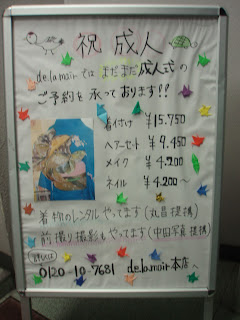 祝 成人
de.lamoirでは まだまだ成人式の
ご予約を承っております!!
着付け ¥15.750
ヘアーセット ¥9.450
メイク ¥4.200
ネイル ¥4.200〜
着物のレンタルやってます(丸昌提携)
前撮り撮影もやってます(中田写真提携)
詳しくは
0120-10-7681 de.lamoir本店